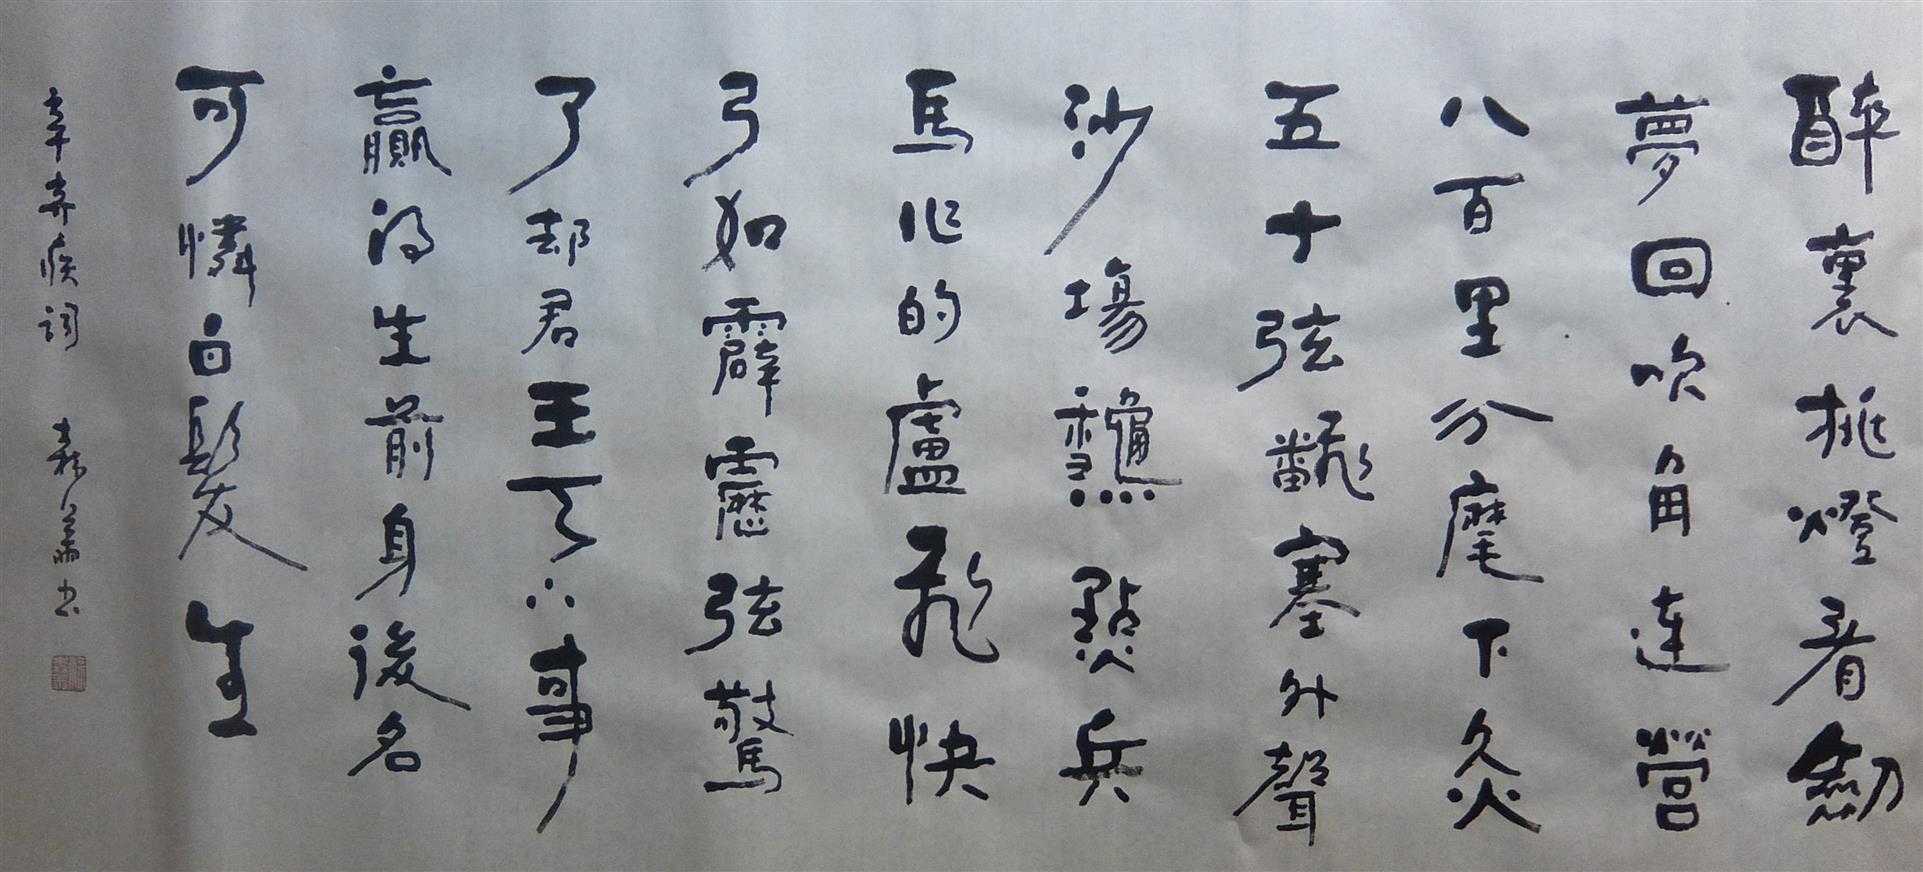 醉裏挑燈看劍
夢回吹角連營
八百里分麾下炙
五十弦飜塞外聲
沙場龝點兵
馬作的盧飛快
弓如霹靂弦驚
了却君王天下事
贏得生前身後名
可憐白髮生
辛弃疾詞 书